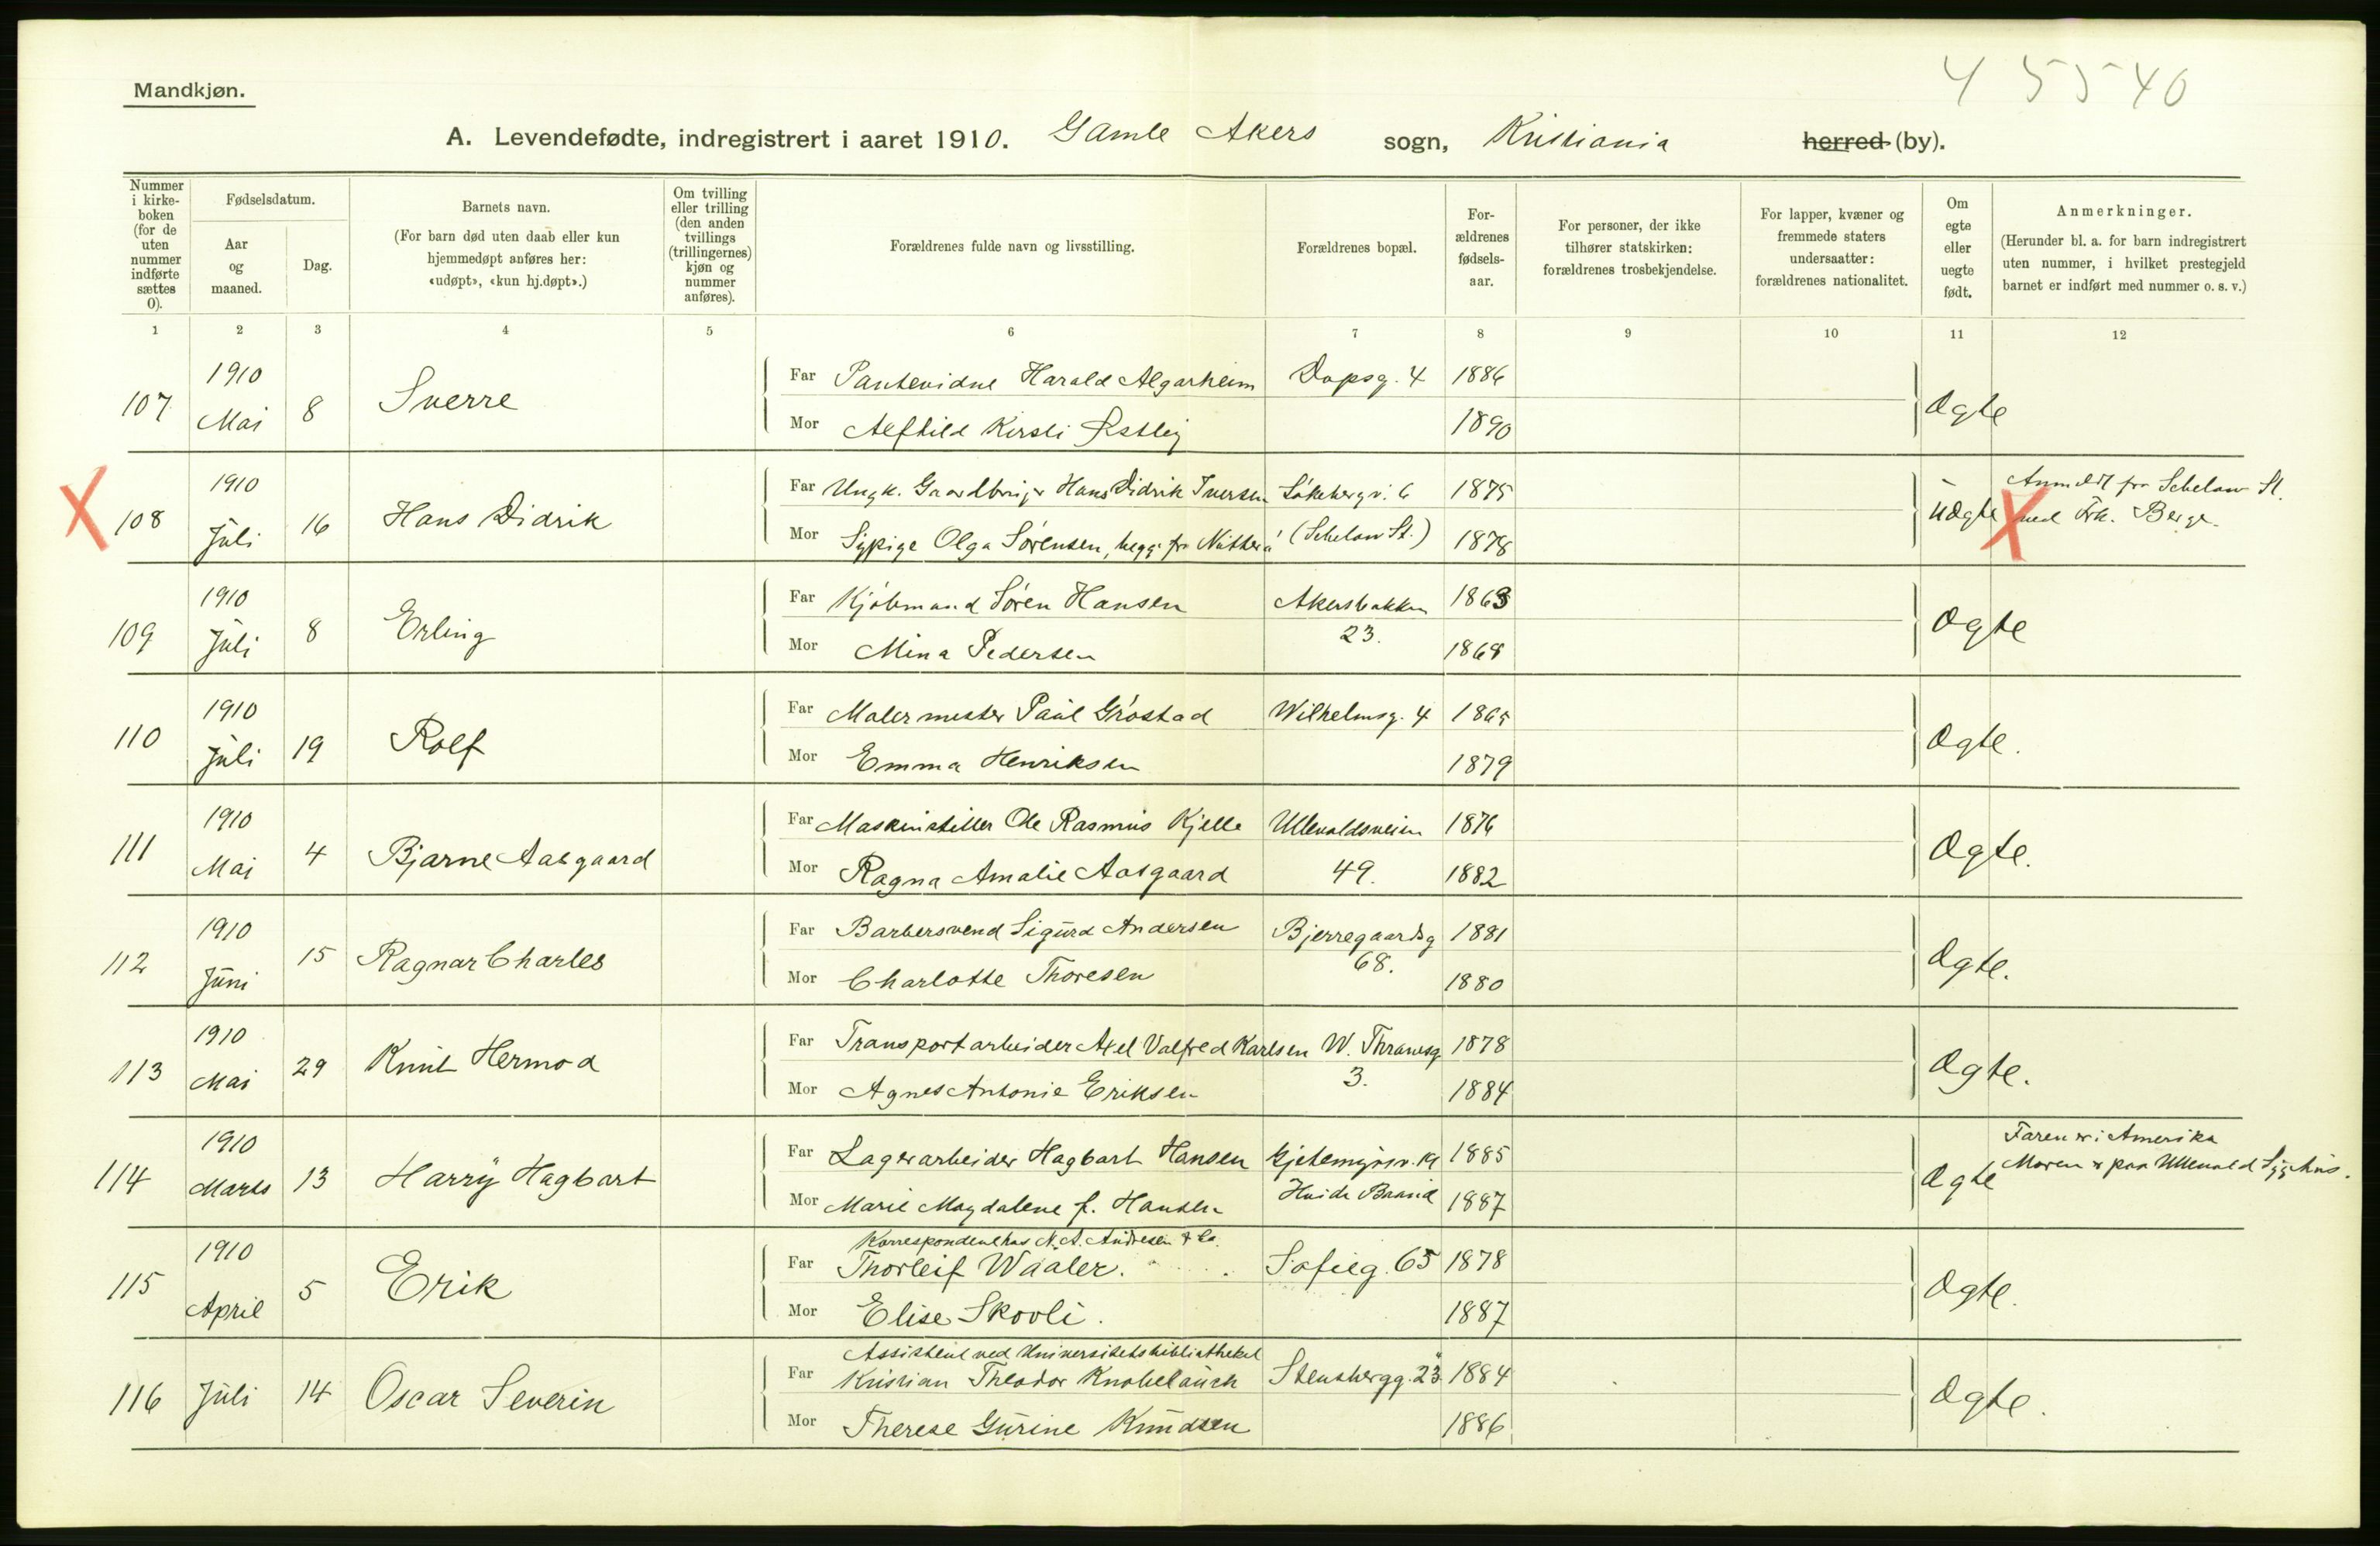 4 5540
Mandkjøn.
A. Levendefødte, indregistrert i aaret 1910. Gamle Akers sogn, Kristiania herred (by).
Nummer i kirke- boken (for de uten nummer indførte sættes 0).
Fødselsdatum.
Aar og maaned.
Dag.
Barnets navn.
(For barn død uten daab eller kun hjemmedøpt anføres her: «udøpt», «kun hj.døpt».)
Om tvilling eller trilling (den anden tvillings (trillingernes) kjøn og nummer anføres).
Forældrenes fulde navn og livsstilling.
Forældrenes bopæl.
For- ældrenes fødsels- aar.
For personer, der ikke tilhører statskirken: forældrenes trosbekjendelse.
For lapper, kvæner og fremmede staters undersaatter: forældrenes nationalitet.
Om egte eller uegte født.
Anmerkninger.
(Herunder bl. a. for barn indregistrert uten nummer, i hvilket prestegjeld barnet er indført med nummer o. s. v.)
1 2 3 4 5 6 7 8 9 10 11 12
107 1910 Mai 8 Sverre
Far Harald Algarheim Dopsg. 4 1886
Mor Alfhild Kirsti Østby 1890
Ægte
X 108 1910 Juli 16 Hans Didrik
Far Ungk. Hans Didrik Iversen 6 1875
Mor Sypige Olga Sørensen, begg. fr. (Schelow St.) 1878
Uægte X Anmeldt fra Schelow St. ved Frk. Berge.
109 1910 Juli 8 Erling
Far Kjøbmand Søren Hansen Akersbakken 1863
Mor Mina Pedersen 23. 1868
Ægte
110 1910 Juli 19 Rolf
Far Malermester Paul Grøstad Wilhelmsg. 4 1865
Mor Emma Henriksen 1879
Ægte.
111 1910 Mai 4 Bjarne Aasgaard
Far Maskinstiller Ole Rasmus Kjelle Ullevoldsveien 1876
Mor Ragna Amalie Aasgaard 49. 1882
Ægte.
112 1910 Juni 15 Ragnar Charles
Far Barbersvend Sigurd Andersen Bjerregaardsg 1881
Mor Charlotte Thoresen 68. 1880
Ægte.
113 1910 Mai 29 Knut Hermod
Far Transportarbeider Axel Valfred Karlsen W. Thranesg 1878
Mor Agnes Antonie Eriksen 3. 1884
Ægte.
114 1910 Marts 13 Harry Hagbart
Far Lagerarbeider Hagbart Hansen Gjetemyrsv. 19 1885
Mor Marie Magdalene f. Hansen 1887
Ægte Faren er i Amerika
Moren er paa Ullevold Sygehus.
115 1910 April 5 Erik
Korrespondent hos N. A. Andresen & Co.
Far Thorleif Waaler. Sofieg. 65 1878
Mor Elise Skovli. 1887
Ægte.
116 Juli 14 Oscar Severin
Assistent ved Universitetsbibliotheket
Far Kristian Theodor Knobelauch Stensbergg. 23 1884
Mor Therese Gurine Knudsen 1886
Ægte.